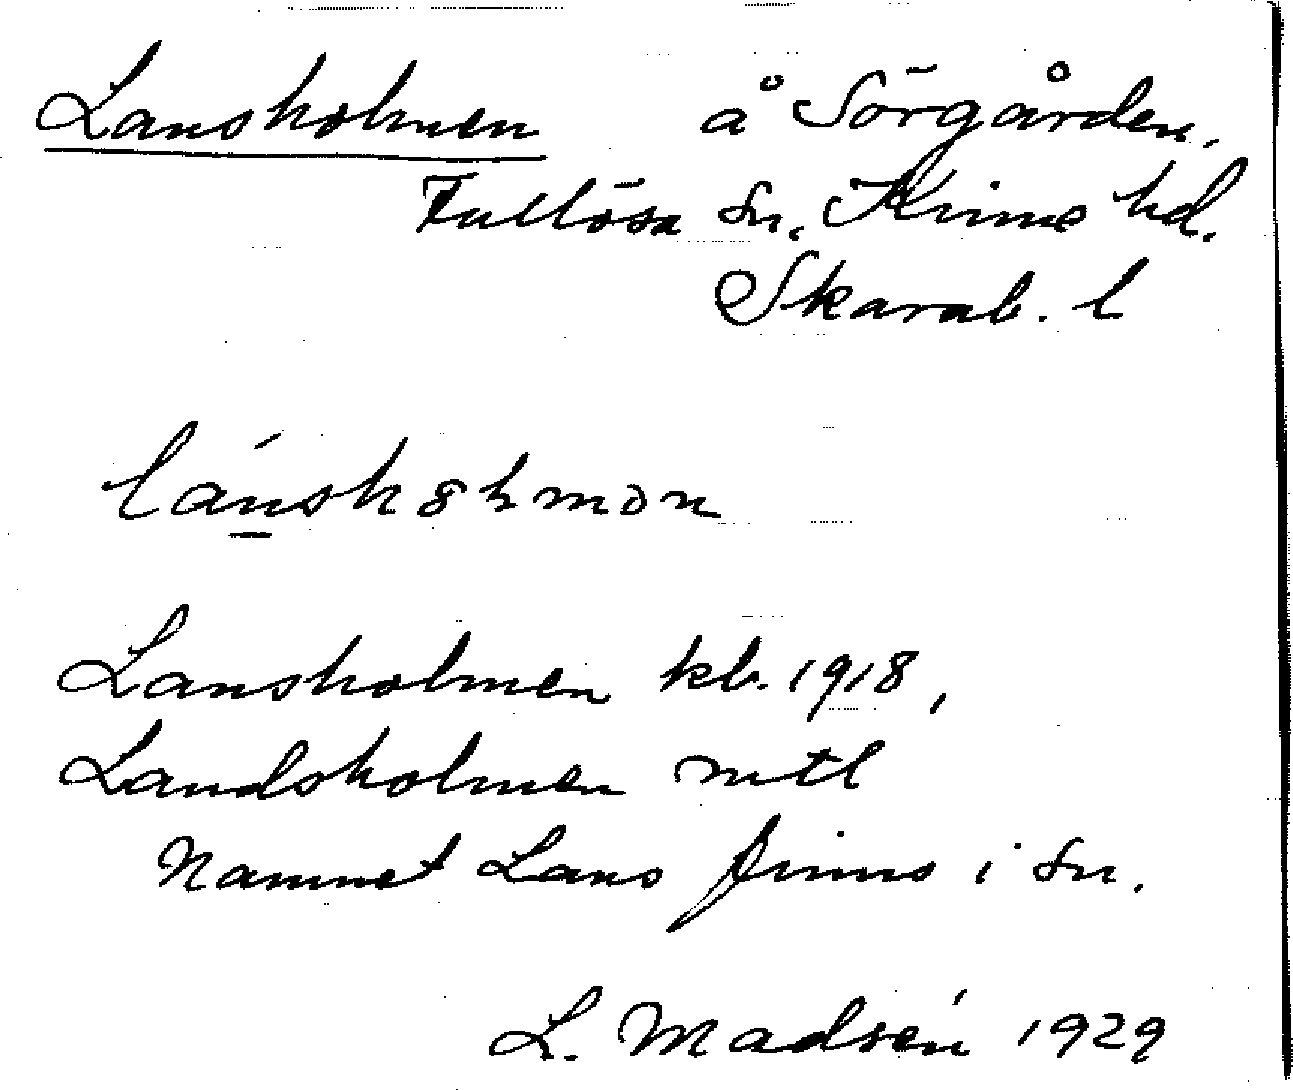 Lansholmen å Sörgården,
Fullösa sn, Kinne hd.
Skarab. l
Lansholmen kb. 1918,
Landsholmen mtl
Namnet Lans finns i sn.
L. Madsén 1929